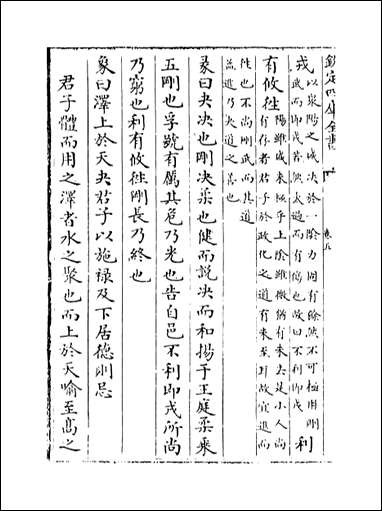 欽定四庫全書
戎
以衆陽之盛决於一陰力固有餘然不可極用剛
武而即戎若然太過而有傷也故曰不利即戎
利
有攸往
陽雖盛未極乎上陰雖微猶有未去是小人尚
有存者君子於政化之道有未至耳故宜進而
往也不尚剛武而其道
益進乃夬道之善也
彖曰夬决也剛决柔也健而說决而和揚于王庭柔乘
五剛也孚號有厲其危乃光也告自邑不利即戎所尚
乃窮也利有攸往剛長乃終也
象曰澤上於天夬君子以施禄及下居德則忌
君子體而用之澤者水之聚也而上於天喻至高之